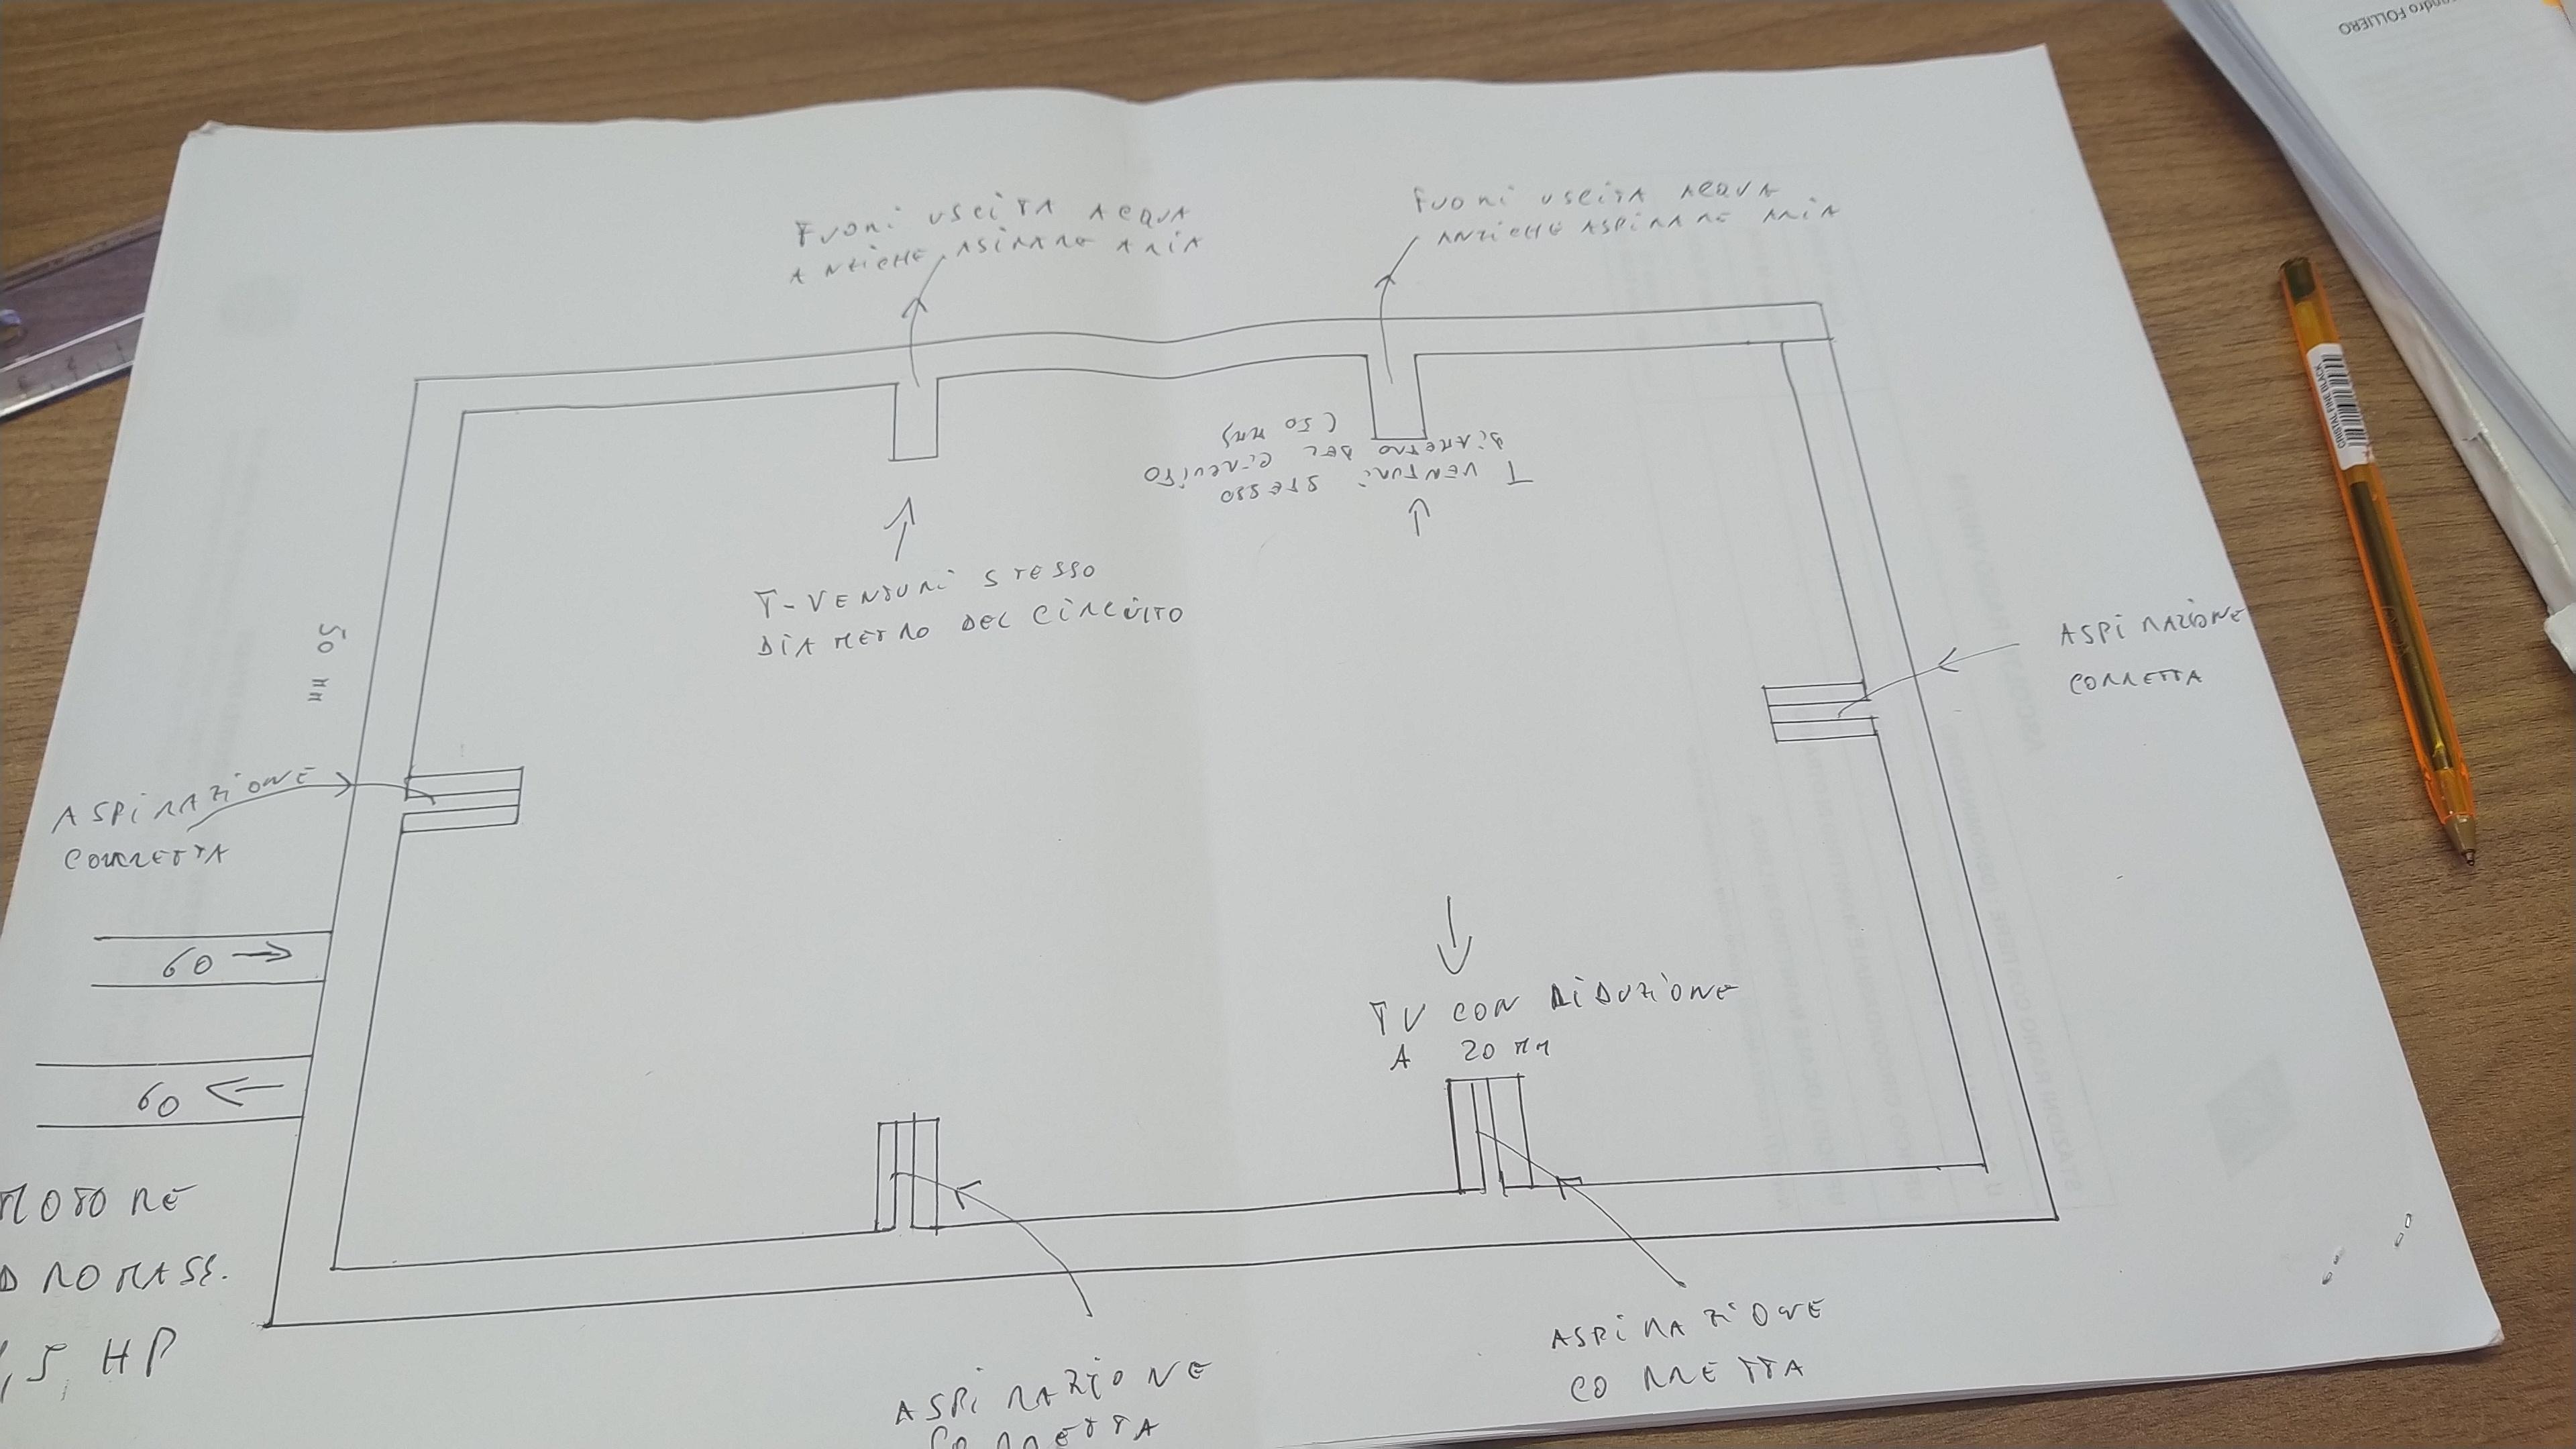 andro FOLLIERO
FUORI USCITA ACQUA
ANZICHE ASIRARE ARIA
FUORI USCITA ACQUA
ANZICHE ASPIRARE ARIA
T VENTURI STESSO
DIAMETRO DEL CIRCUITO
(50 MM)
T-VENTURI STESSO
DIAMETRO DEL CIRCUITO
50 MM
ASPIRAZIONE
CORRETTA
ASPIRAZIONE
CORRETTA
60
60
TV CON RIDUZIONE
A 20 MM
MOTORE
DROMASS.
,5 HP
ASPIRAZIONE
CORRETTA
ASPIRAZIONE
CORRETTA
CRISTAL FINE BLACK